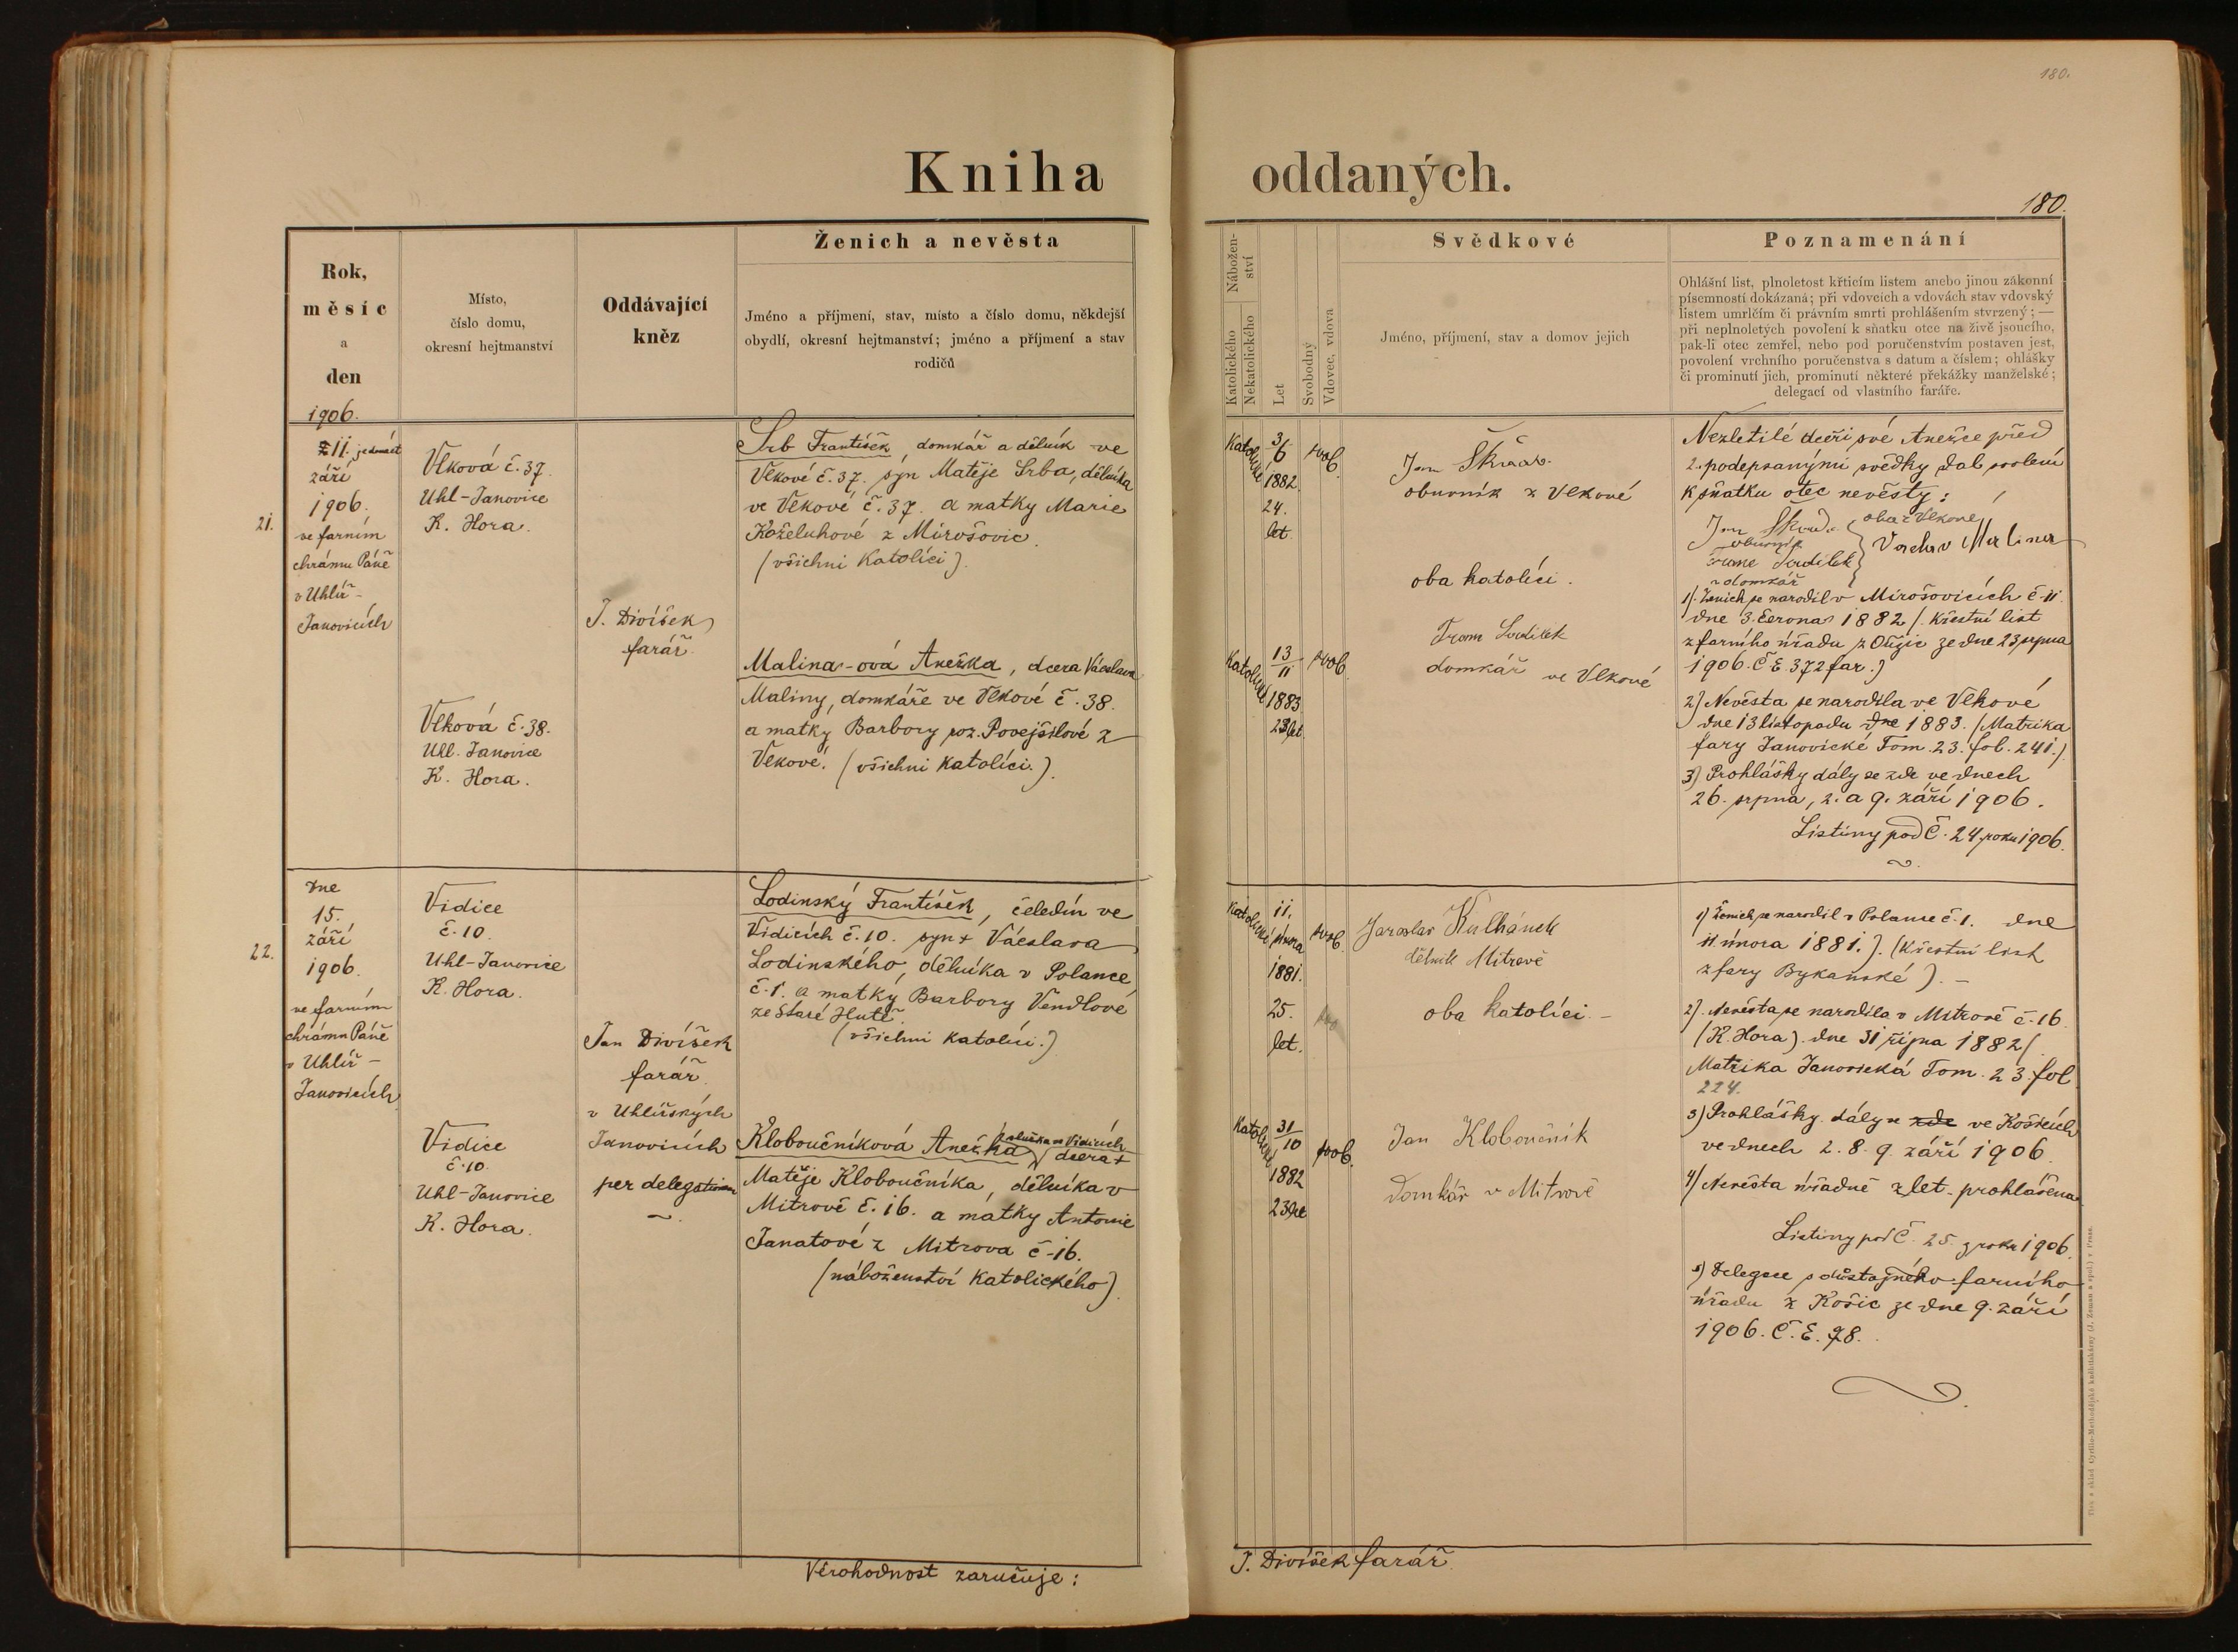 180.
Kniha oddaných.
180.
Rok,
měsíc
a
den
1906.
Místo,
číslo domu,
okresní hejtmanství
Oddávající
kněz
Ženich a nevěsta
Jméno a příjmení, stav, místo a číslo domu, někdejší
obydlí, okresní hejtmanství; jméno a příjmení a stav
rodičů
Nábožen-
ství
Katolického
Nekatolického
Let
Svobodný
Vdovec, vdova
Svědkové
Jméno, příjmení, stav a domov jejich
Poznamenání
Ohlášní list, plnoletost křticím listem anebo jinou zákonní
písemností dokázaná; při vdovcích a vdovách stav vdovský
listem umrlčím či právním smrti prohlášením stvrzený; —
při neplnoletých povolení k sňatku otce na živě jsoucího,
pak-li otec zemřel, nebo pod poručenstvím postaven jest,
povolení vrchního poručenstva s datum a číslem; ohlášky
či prominutí jich, prominutí některé překážky manželské;
delegací od vlastního faráře.
21.
11. jedenáct
září
1906.
ve farním
chrámu Páně
v Uhlíř-
Janovicích
Vlková č. 37.
Uhl-Janovice
K. Hora.
Vlková č. 38.
Uhl. Janovice
K. Hora.
J. Divíšek
farář.
Srb František, domkář a dělník ve
Vlkové č. 37. syn Matěje Srba, dělníka
ve Vlkové č. 37. a matky Marie
Koželuhové z Mirošovic.
(všichni Katolíci).
Malina-ová Anežka, dcera Václava
Maliny, domkáře ve Vlkové č. 38.
a matky Barbory roz. Povejšilové z
Vlkové. (všichni katolíci.).
Katolické
3/6
1882.
24.
let.
svob.
Katolické
13/11
1883
23 let
svob.
Jan
obuvník z Vlkové
oba katolíci.
domkář ve Vlkové
Nezletilé dceři své Anežce před
2. podepsanými svědky dal svolení
k sňatku otec nevěsty:
Jan
oba z Vlkové
obuvník
Vaclav Malina
domkář
1). Ženich se narodil v Mirošovicích č. 11.
dne 3. června 1882 /. Křestní list
z farního úřadu z Oužic ze dne 23 srpna
1906. Č E. 372 far.)
2) Nevěsta se narodila ve Vlkové
dne 13 listopadu dne 1883. (Matrika
fary Janovické Tom. 23. fol. 241.)
3) Prohlášky dály se zde ve dnech
26. srpna, 2. a 9. září 1906.
Listiny pod Č. 24 roku 1906.
22.
Dne
15.
září
1906.
ve farním
chrámu Páně
v Uhlíř-
Janovicích
Vidice
č. 10.
Uhl-Janovice
K. Hora.
Vidice
č. 10.
Uhl-Janovice
K. Hora.
Jan Divíšek
farář
v Uhlířských
Janovicích
per delegationem
Lodinský František, čeledín ve
Vidicích č. 10. syn + Václava
Lodinského, dělníka v Polance
č. 1. a matky Barbory Vendlové
ze Staré Hutě.
(všichni katolíci.)
Kloboučníková Anežka, služka ve Vidicích, dcera +
Matěje Kloboučníka, dělníka v
Mitrově č. 16. a matky Antonie
Janatové z Mitrova č. 16.
(náboženství katolického).
Katolické
11.
února
1881.
25.
let.
svob.
Katolické
31/10
1882
23 let
svob.
Jaroslav Kulhánek
dělník Mitrově
oba katolíci. -
Jan Kloboučník
Domkář v Mitrově
1) Ženich se narodil v Polance č. 1. dne
11. února 1881.). (Křestní list
z fary Bykanské). -
2). Nevěsta se narodila v Mitrově č. 16.
(K. Hora). dne 31 října 1882 /.
Matrika Janovická Tom. 23. fol
224.
3) Prohlášky dály se zde ve Košicích
ve dnech 2. 8. 9. září 1906.
4) Nevěsta úřadně z let. prohlášena
Listiny pod Č. 25. z roku 1906.
5) Delegace důstojného farního
úřadu z Košic ze dne 9. září
1906. Č. E. 78.
Věrohodnost zaručuje:
J. Divíšek farář.
Tisk a sklad Cyrillo-Methodějské knihtiskárny (J. Zeman a spol.) v Praze.